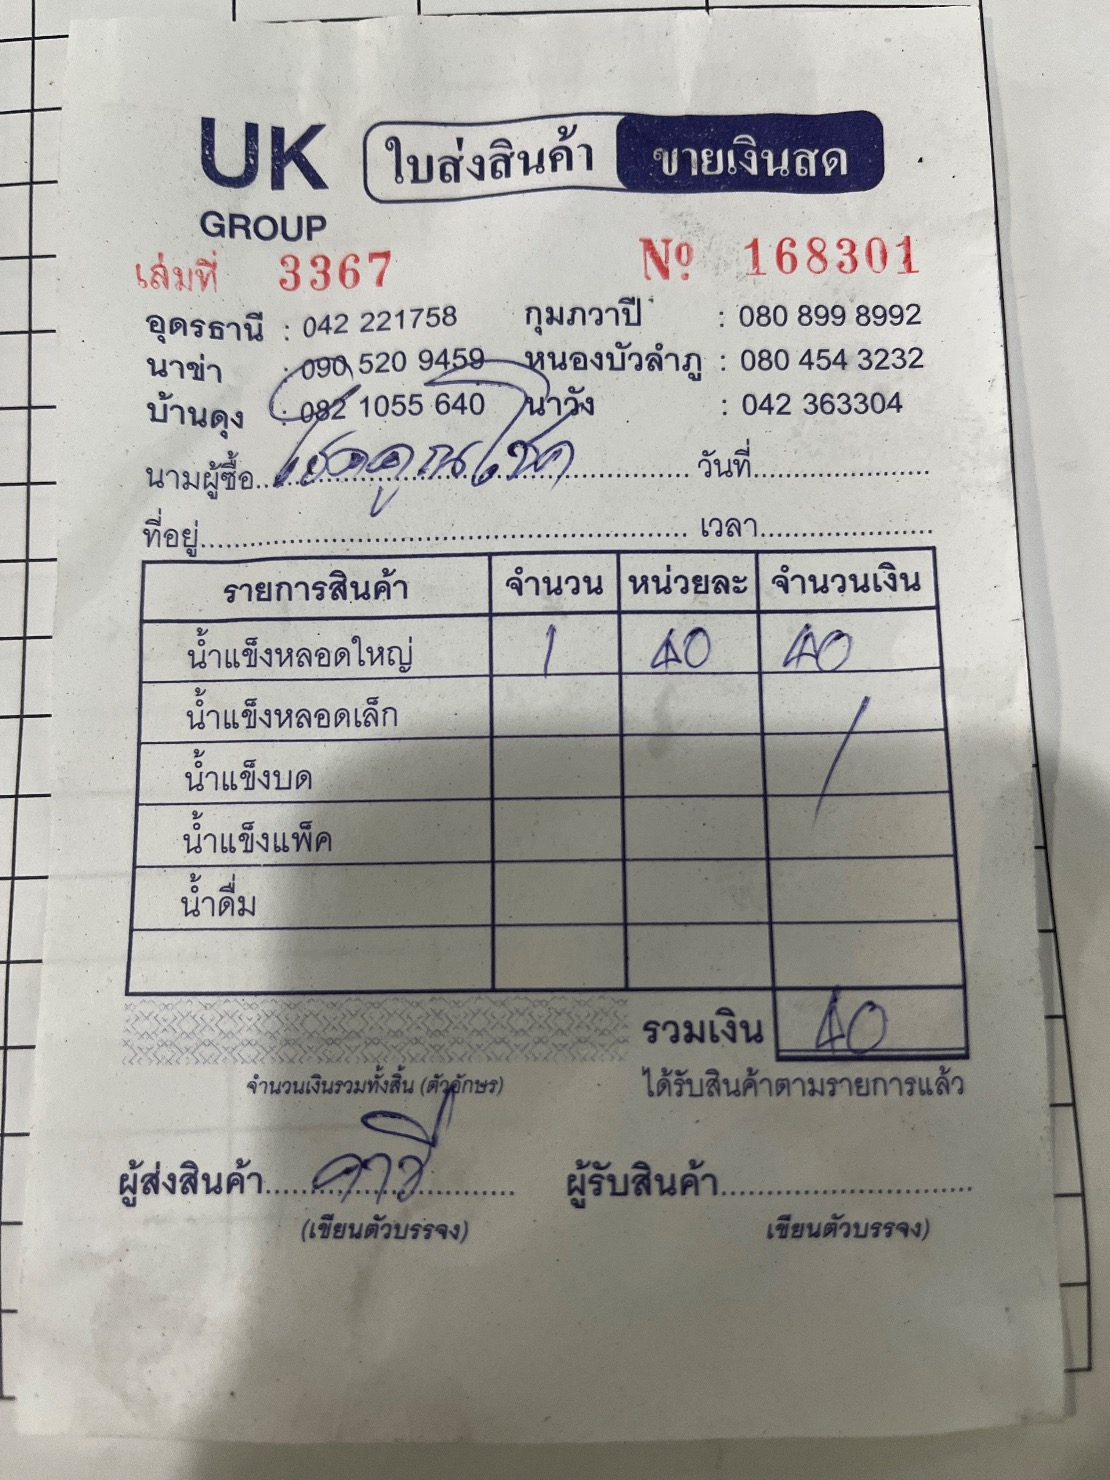 UK
GROUP
ใบส่งสินค้า ขายเงินสด
เล่มที่ 3367 Nº 168301
อุดรธานี : 042 221758 กุมภวาปี : 080 899 8992
นาข่า : 090 520 9459 หนองบัวลำภู : 080 454 3232
บ้านดุง : 082 1055 640 นาวัง : 042 363304
นามผู้ซื้อ โชคคูณโชค วันที่
ที่อยู่ เวลา
รายการสินค้า จำนวน หน่วยละ จำนวนเงิน
น้ำแข็งหลอดใหญ่ 1 40 40
น้ำแข็งหลอดเล็ก
น้ำแข็งบด
น้ำแข็งแพ็ค
น้ำดื่ม
รวมเงิน 40
จำนวนเงินรวมทั้งสิ้น (ตัวอักษร) ได้รับสินค้าตามรายการแล้ว
ผู้ส่งสินค้า ผู้รับสินค้า
(เขียนตัวบรรจง) เขียนตัวบรรจง)